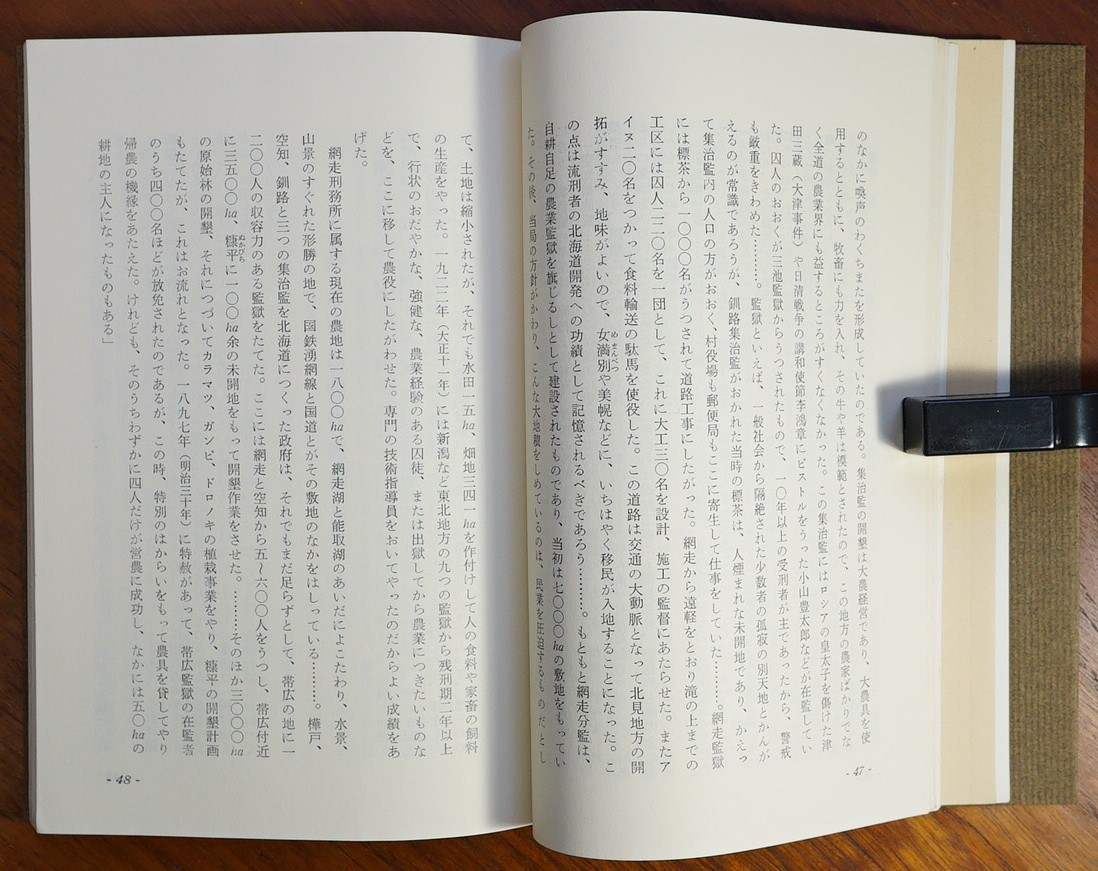 のなかに喚声のわくちまたを形成していたのである。集治監の開墾は大農経営であり、大農具を使
用するとともに、牧畜にも力を入れ、その牛や羊は模範とされたので、この地方の農家ばかりでな
く全道の農業界にも益するところがすくなくなかった。この集治監にはロシアの皇太子を傷けた津
田三蔵（大津事件）や日清戦争の講和使節李鴻章にピストルをうった小山豊太郎などが在監してい
た。囚人のおおくが三池監獄からうつされたもので、一〇年以上の受刑者が主であったから、警戒
も厳重をきわめた………。監獄といえば、一般社会から隔絶された少数者の孤寂の別天地とかんが
えるのが常識であろうが、釧路集治監がおかれた当時の標茶は、人煙まれな未開地であり、かえっ
て集治監内の人口の方がおおく、村役場も郵便局もここに寄生して仕事をしていた………。網走監獄
には標茶から一〇〇〇名がうつされて道路工事にしたがった。網走から遠軽をとおり滝の上までの
工区には囚人二二〇名を一団として、これに大工三〇名を設計、施工の監督にあたらせた。またア
イヌ二〇名をつかって食料輸送の駄馬を使役した。この道路は交通の大動脈となって北見地方の開
拓がすすみ、地味がよいので、女満別や美幌などに、いちはやく移民が入地することになった。こ
めまんべつ
の点は流刑者の北海道開発への功績として記憶されるべきであろう………。もともと網走分監は、
自耕自足の農業監獄を旗じるしとして建設されたものであり、当初は七〇〇〇haの敷地をもってい
た。その後、当局の方針がかわり、こんな大地積をしめているのは、民業を圧迫するものだとし
- 47 -
て、土地は縮小されたが、それでも水田一五ha、畑地三四一haを作付けして人の食料や家畜の飼料
の生産をやった。一九二二年（大正十一年）には新潟など東北地方の九つの監獄から残刑期二年以上
で、行状のおだやかな、強健な、農業経験のある囚徒、または出獄してから農業につきたいものな
どを、ここに移して農役にしたがわせた。専門の技術指導員をおいてやったのだからよい成績をあ
げた。
網走刑務所に属する現在の農地は一八〇〇haで、網走湖と能取湖のあいだによこたわり、水景、
山景のすぐれた形勝の地で、国鉄湧網線と国道とがその敷地のなかをはしっている………。樺戸、
空知、釧路と三つの集治監を北海道につくった政府は、それでもまだ足らずとして、帯広の地に一
二〇〇人の収容力のある監獄をたてた。ここには網走と空知から五〜六〇〇人をうつし、帯広付近
に三五〇〇ha、糠平に一〇〇ha余の未開地をもって開墾作業をさせた。………そのほか三〇〇〇ha
ぬかびら
の原始林の開墾、それにつづいてカラマツ、ガンピ、ドロノキの植栽事業をやり、糠平の開墾計画
もたてたが、これはお流れとなった。一八九七年（明治三十年）に特赦があって、帯広監獄の在監者
のうち四〇〇名ほどが放免されたのであるが、この時、特別のはからいをもって農具を貸してやり
帰農の機縁をあたえた。けれども、そのうちわずかに四人だけが営農に成功し、なかには五〇haの
耕地の主人になったものもある」
- 48 -